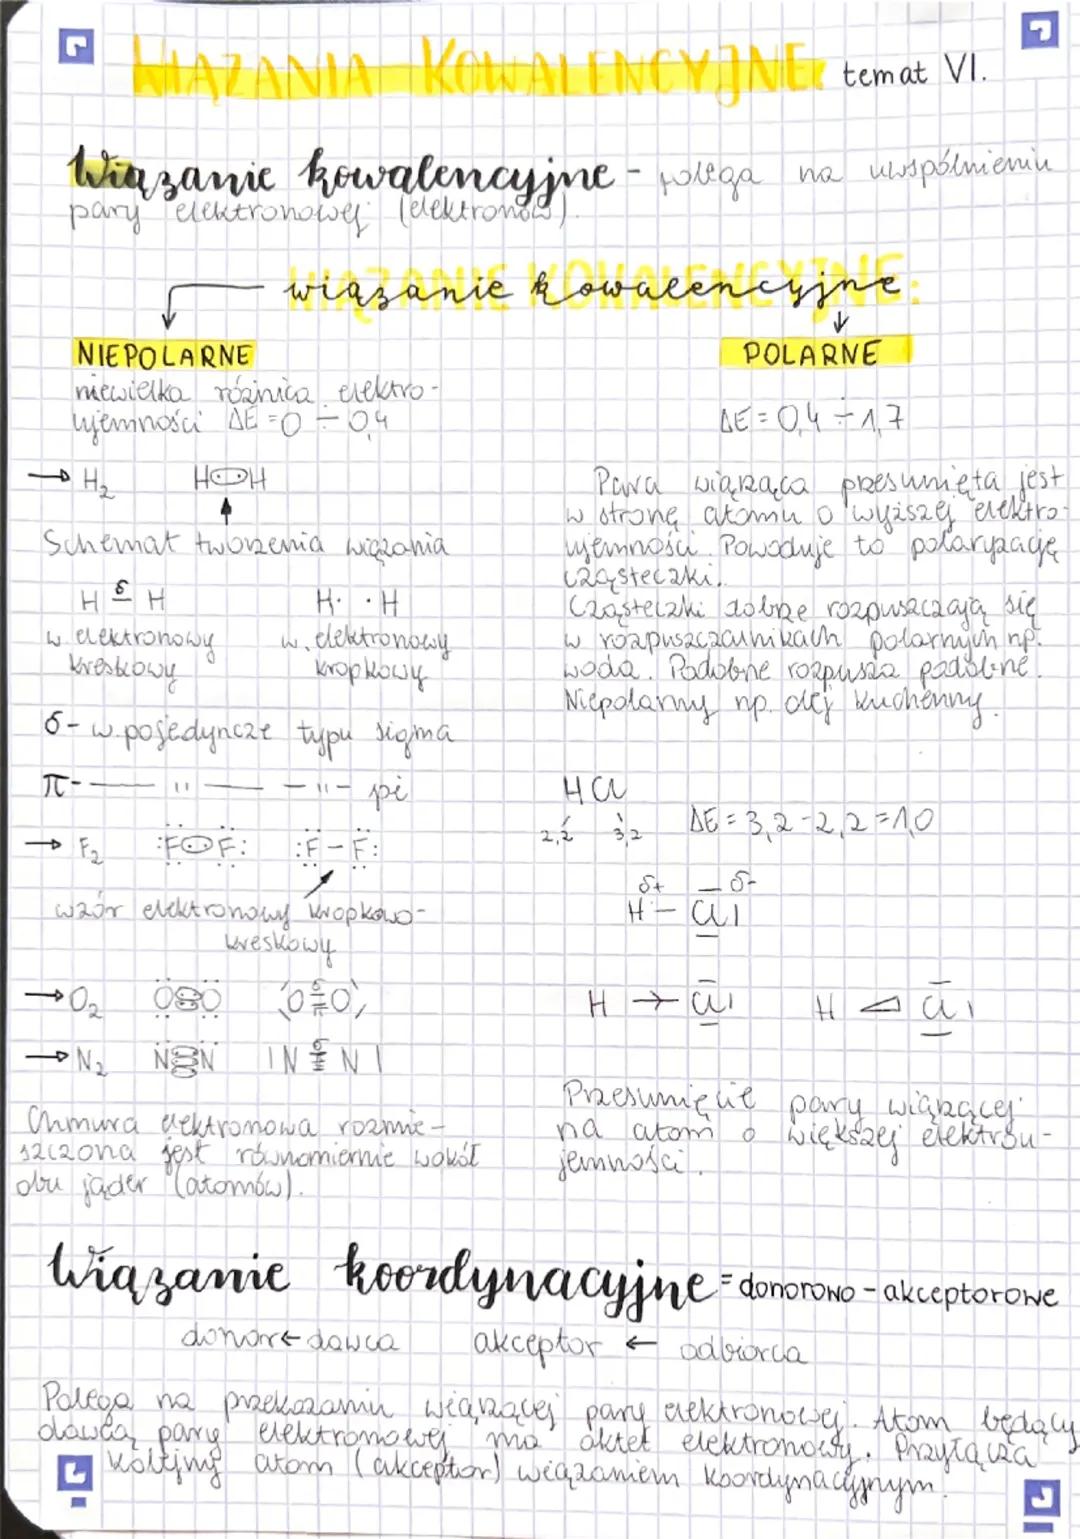 WIĄZANIA KOWALENCYJNE temat VI.
Wiązanie kowalencyjne - polega na uwspólnieniu
pary elektronowej (elektronów).
wiązanie kowalencyjne
WIĄZANIE KOWALENCYJNE:
NIEPOLARNE
niewielka różnica elektro-
ujemności ΔE = 0 ÷ 0,4
→ H₂ H··H
Schemat tworzenia wiązania
H δ— H H· ·H
w. elektronowy w. elektronowy
kreskowy kropkowy
δ - w. pojedyncze typu sigma
π - — " — - " - pi
→ F₂ :F··F: :F – F:
wzór elektronowy kropkowo-
kreskowy
→ O₂ O::O O=O
→ N₂ N N |N≡N|
Chmura elektronowa rozmie-
szczona jest równomiernie wokół
obu jąder (atomów).
POLARNE
ΔE = 0,4 ÷ 1,7
Para wiążąca przesunięta jest
w stronę atomu o wyższej elektro-
ujemności. Powoduje to polaryzację
cząsteczki.
Cząsteczki dobrze rozpuszczają się
w rozpuszczalnikach polarnych np.
woda. Podobne rozpuszcza podobne.
Niepolarny np. olej kuchenny.
HCl
2,2 3,2 ΔE = 3,2 - 2,2 = 1,0
δ+ δ-
H – Cl
H → Cl H ◁ Cl
Przesunięcie pary wiążącej
na atom o większej elektrou-
jemności.
Wiązanie koordynacyjne = donorowo - akceptorowe
donor ← dawca akceptor ← odbiorca
Polega na przekazaniu wiążącej pary elektronowej. Atom będący
dawcą pary elektronowej ma oktet elektronowy. Przyłącza
kolejny atom (akceptor) wiązaniem koordynacyjnym.